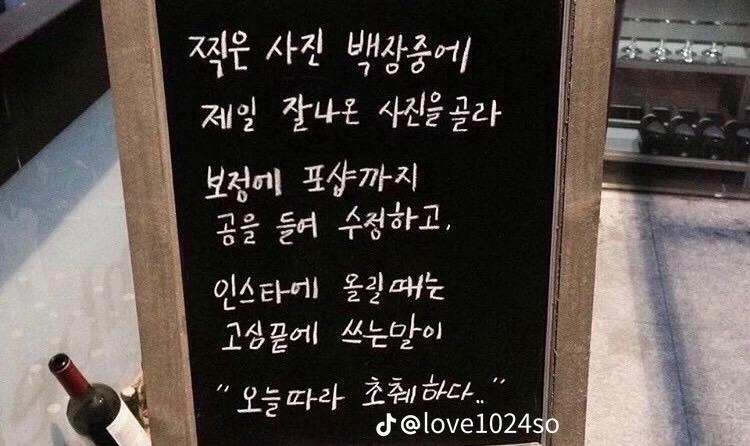 찍은 사진 백장중에
제일 잘나온 사진을골라
보정에 포샵까지
공을 들여 수정하고,
인스타에 올릴때는
고심끝에 쓰는말이
"오늘따라 초췌하다.."
@love1024so